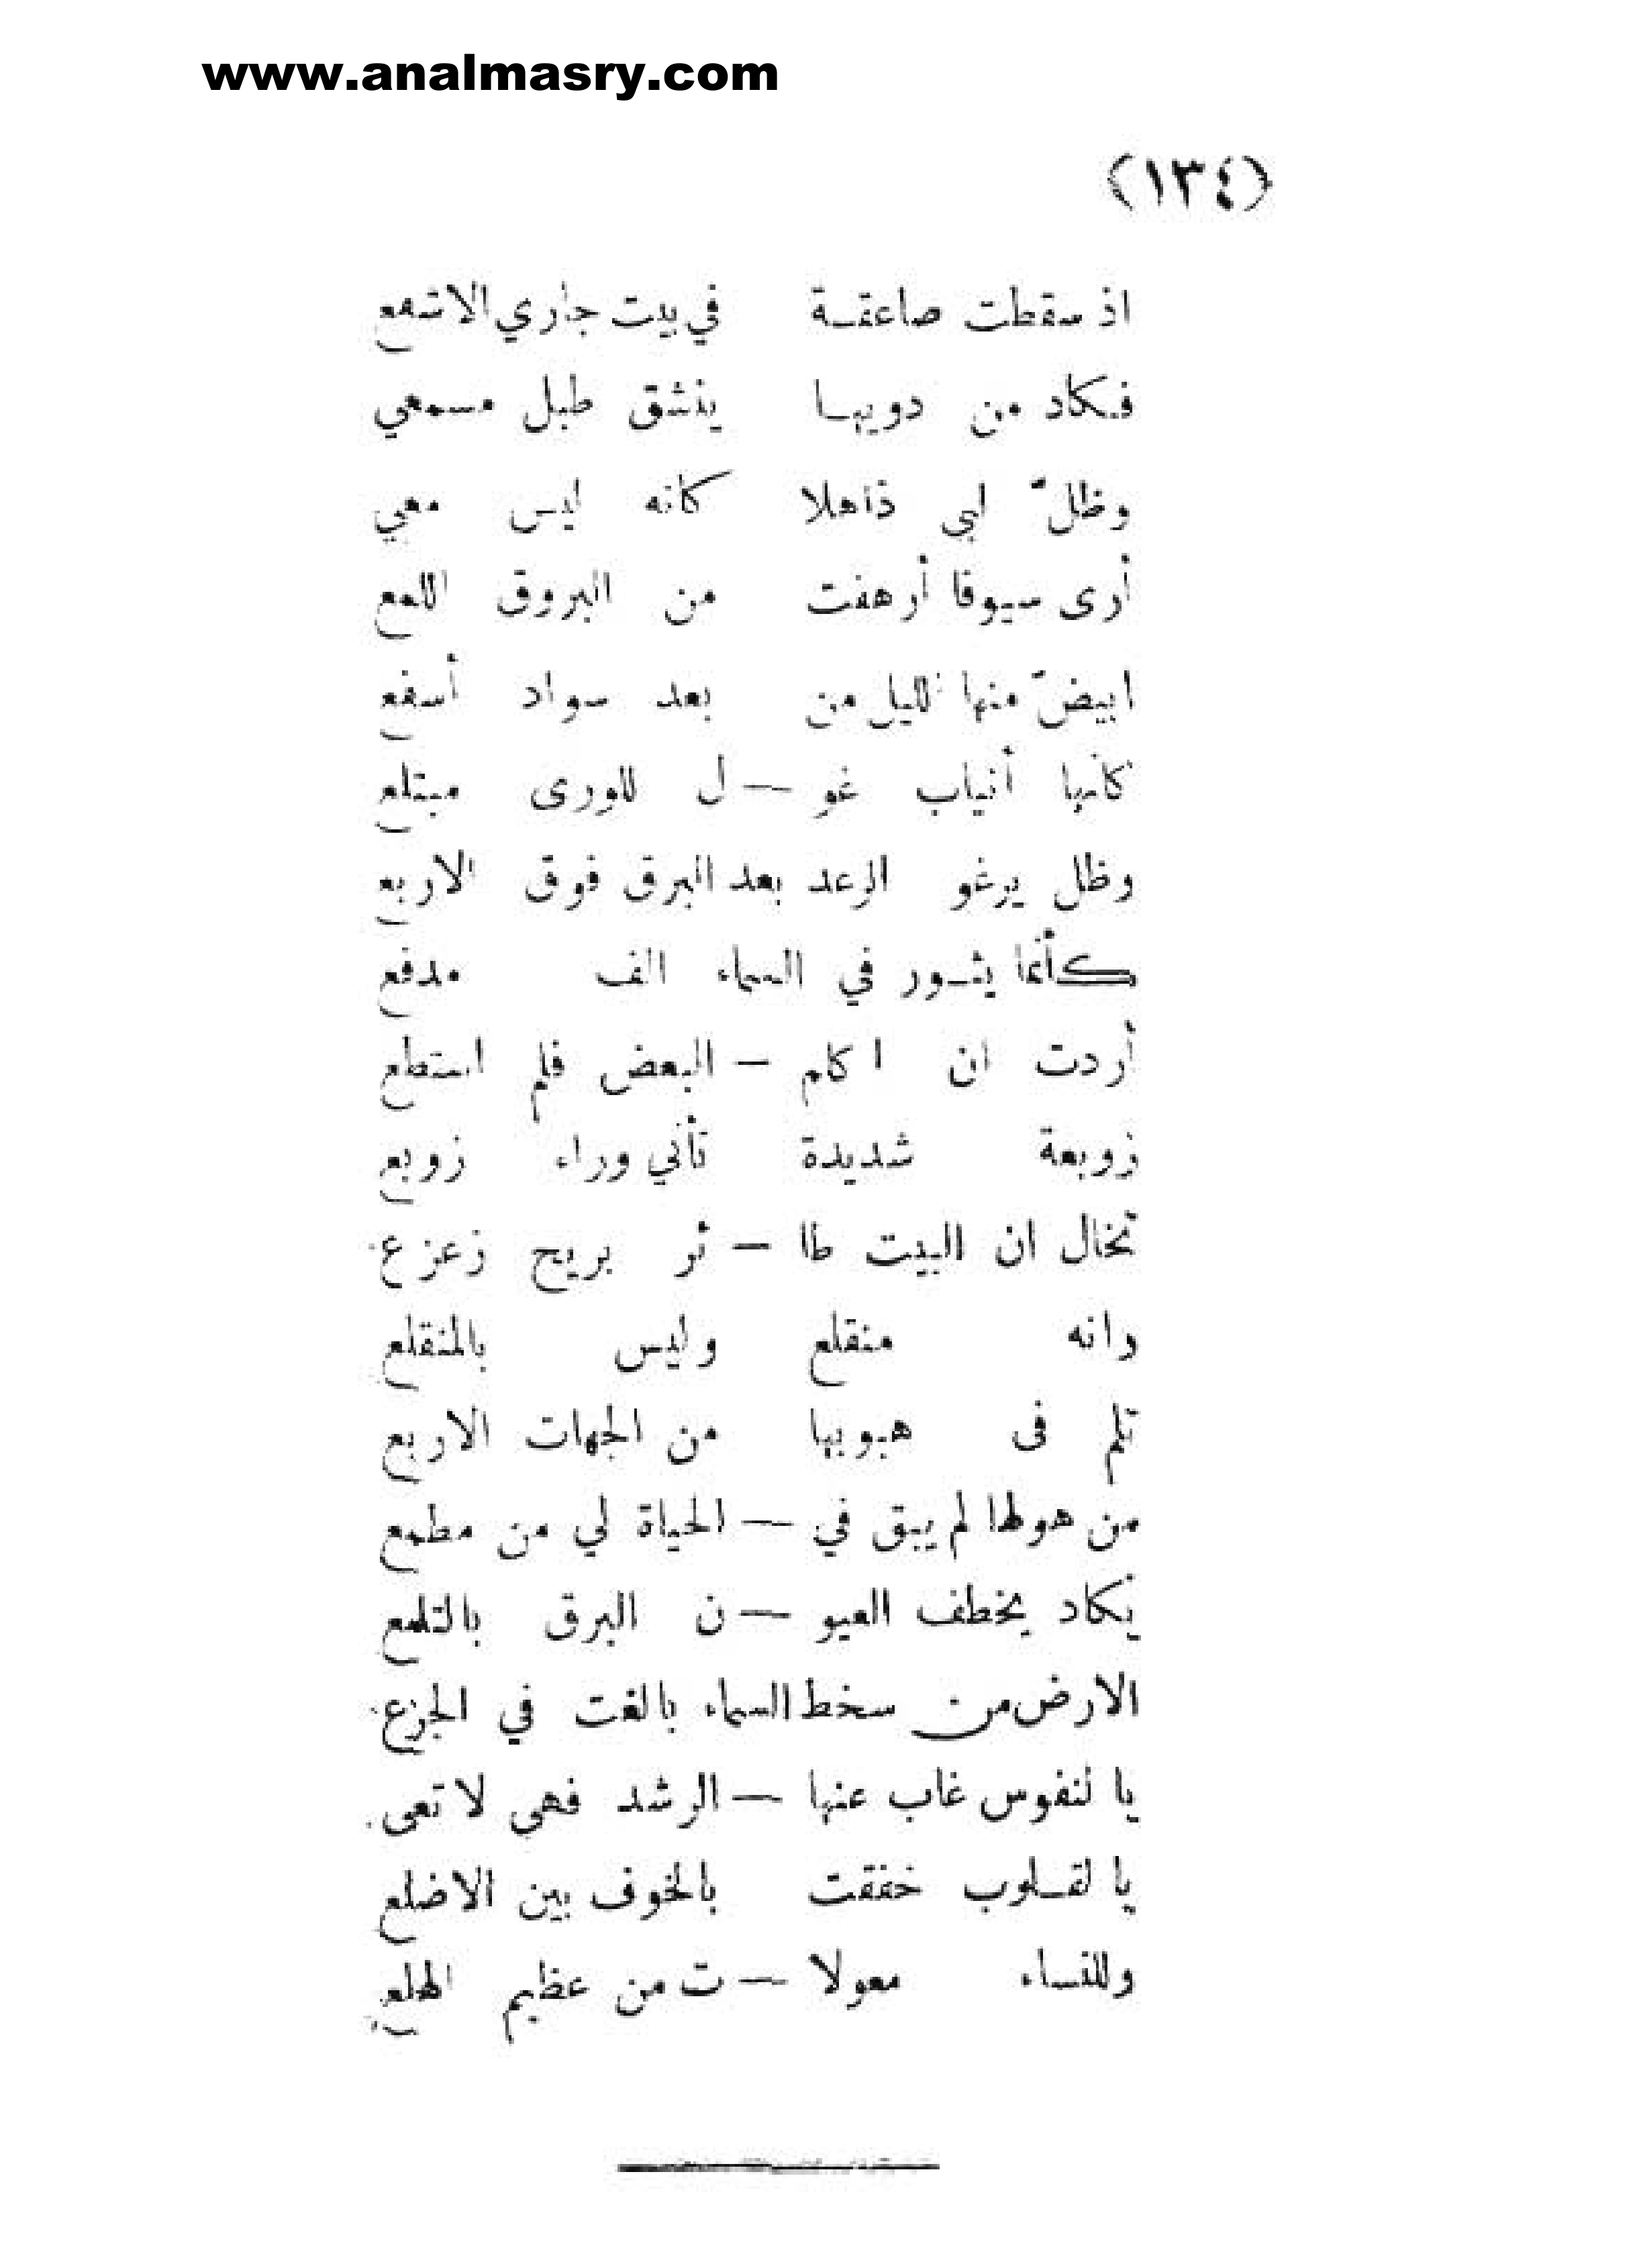 www.analmasry.com
(١٣٤)
اذ سقطت صاعقـة في بيت جاري الاشمع
فـكاد من دويهـا ينشق طبل مسمعي
وظلّ ابي ذاهلا كانه ليس معي
أرى سيوفا أرهفت من البروق اللمع
ابيضّ منها الليل من بعد سواد أسفع
كأنها أنياب غو — ل للورى مبتلع
وظل يرغو الرعد بعد البرق فوق الاربع
كأنما يثـور في السماء الف مدفع
أردت ان اكلم — البعض فلم استطع
زوبعة شديدة تأتي وراء زوبع
تخال ان البيت طا — ئر بريح زعزع
وانه منقلع وليس بالمنقلع
تلم فى هبوبها من الجهات الاربع
من هولها لم يبق في — الحياة لي من مطمع
يكاد يخطف العيو — ن البرق بالتلمع
الارض من سخط السماء بالغت في الجزع
يا لنفوس غاب عنها — الرشد فهي لا تعى
يا لقـلوب خفقت بالخوف بين الاضلع
وللنساء معولا — ت من عظيم الهلع